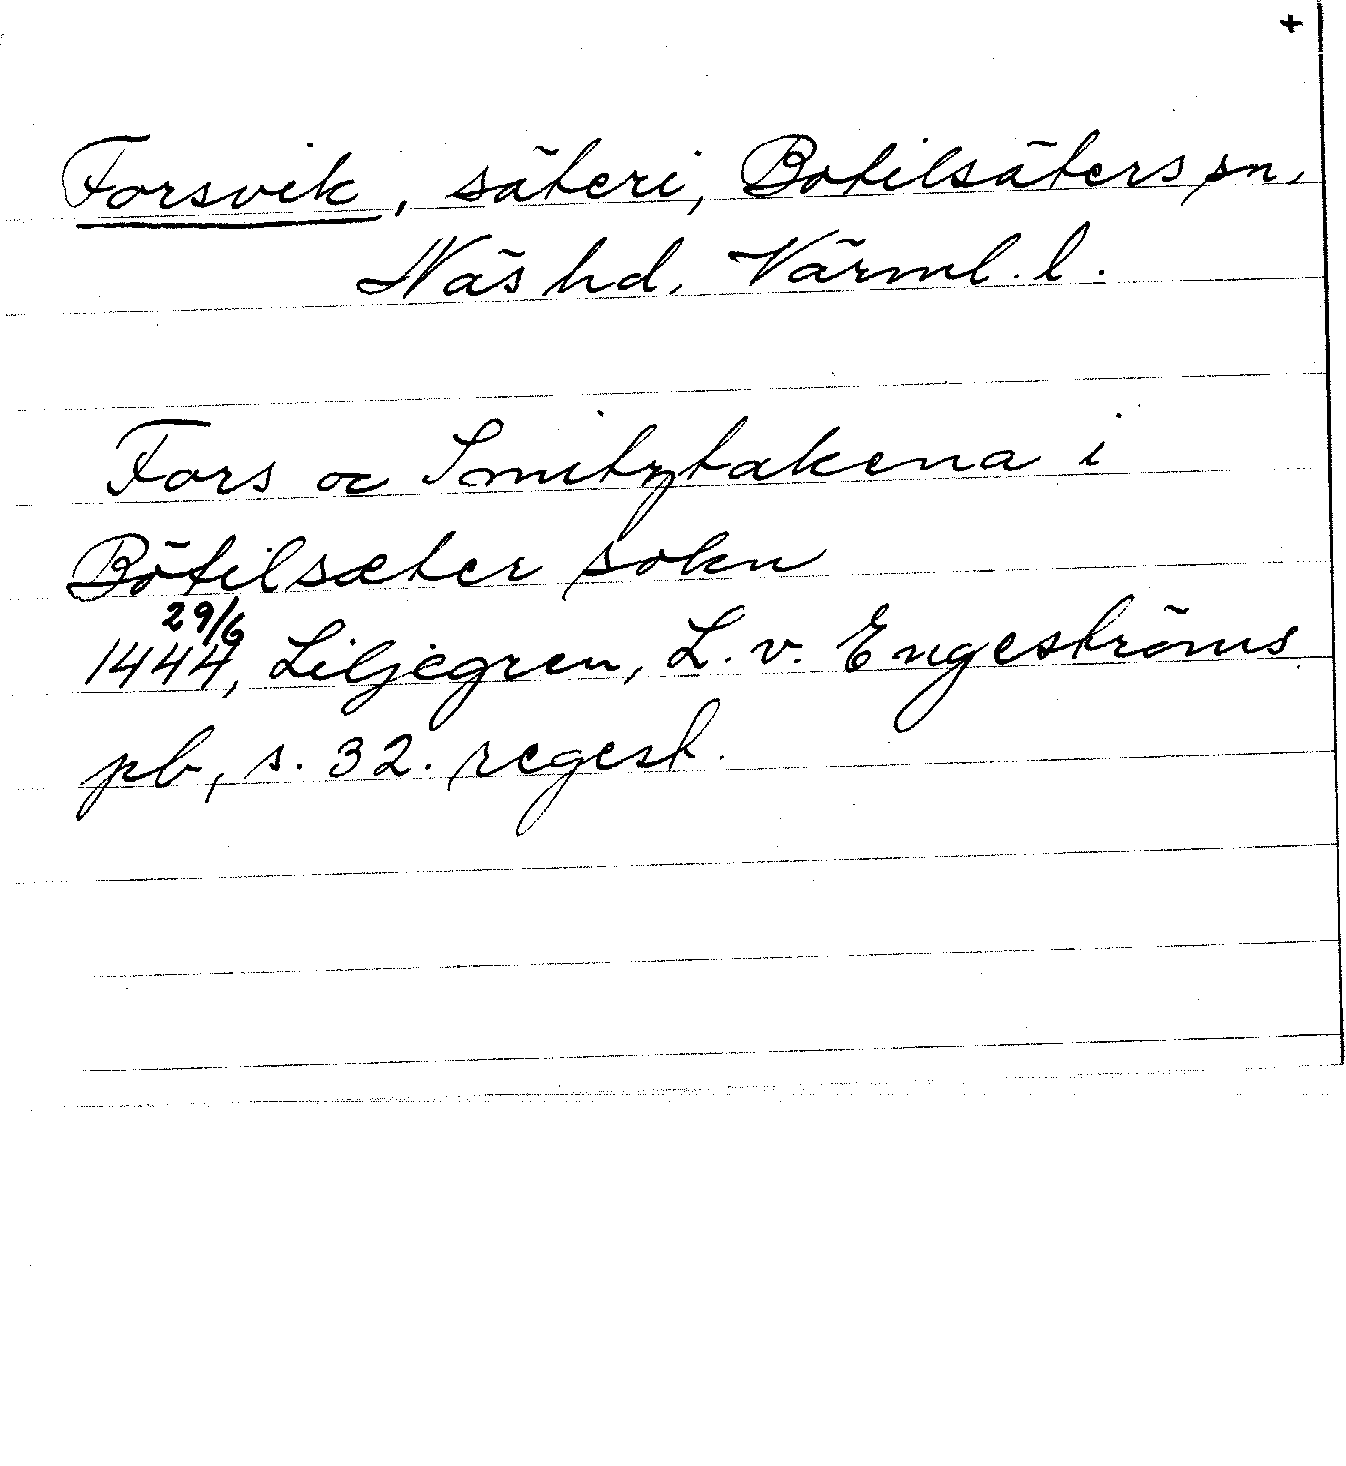 +
Forsvik, säteri, Botilsäters sn,
Näs hd, Värml. l.
Fors oc Smitztakena i
Bötilsæter sokn
29/6
1444, Liljegren, L. v. Engeströms
pb, s. 32. regest.